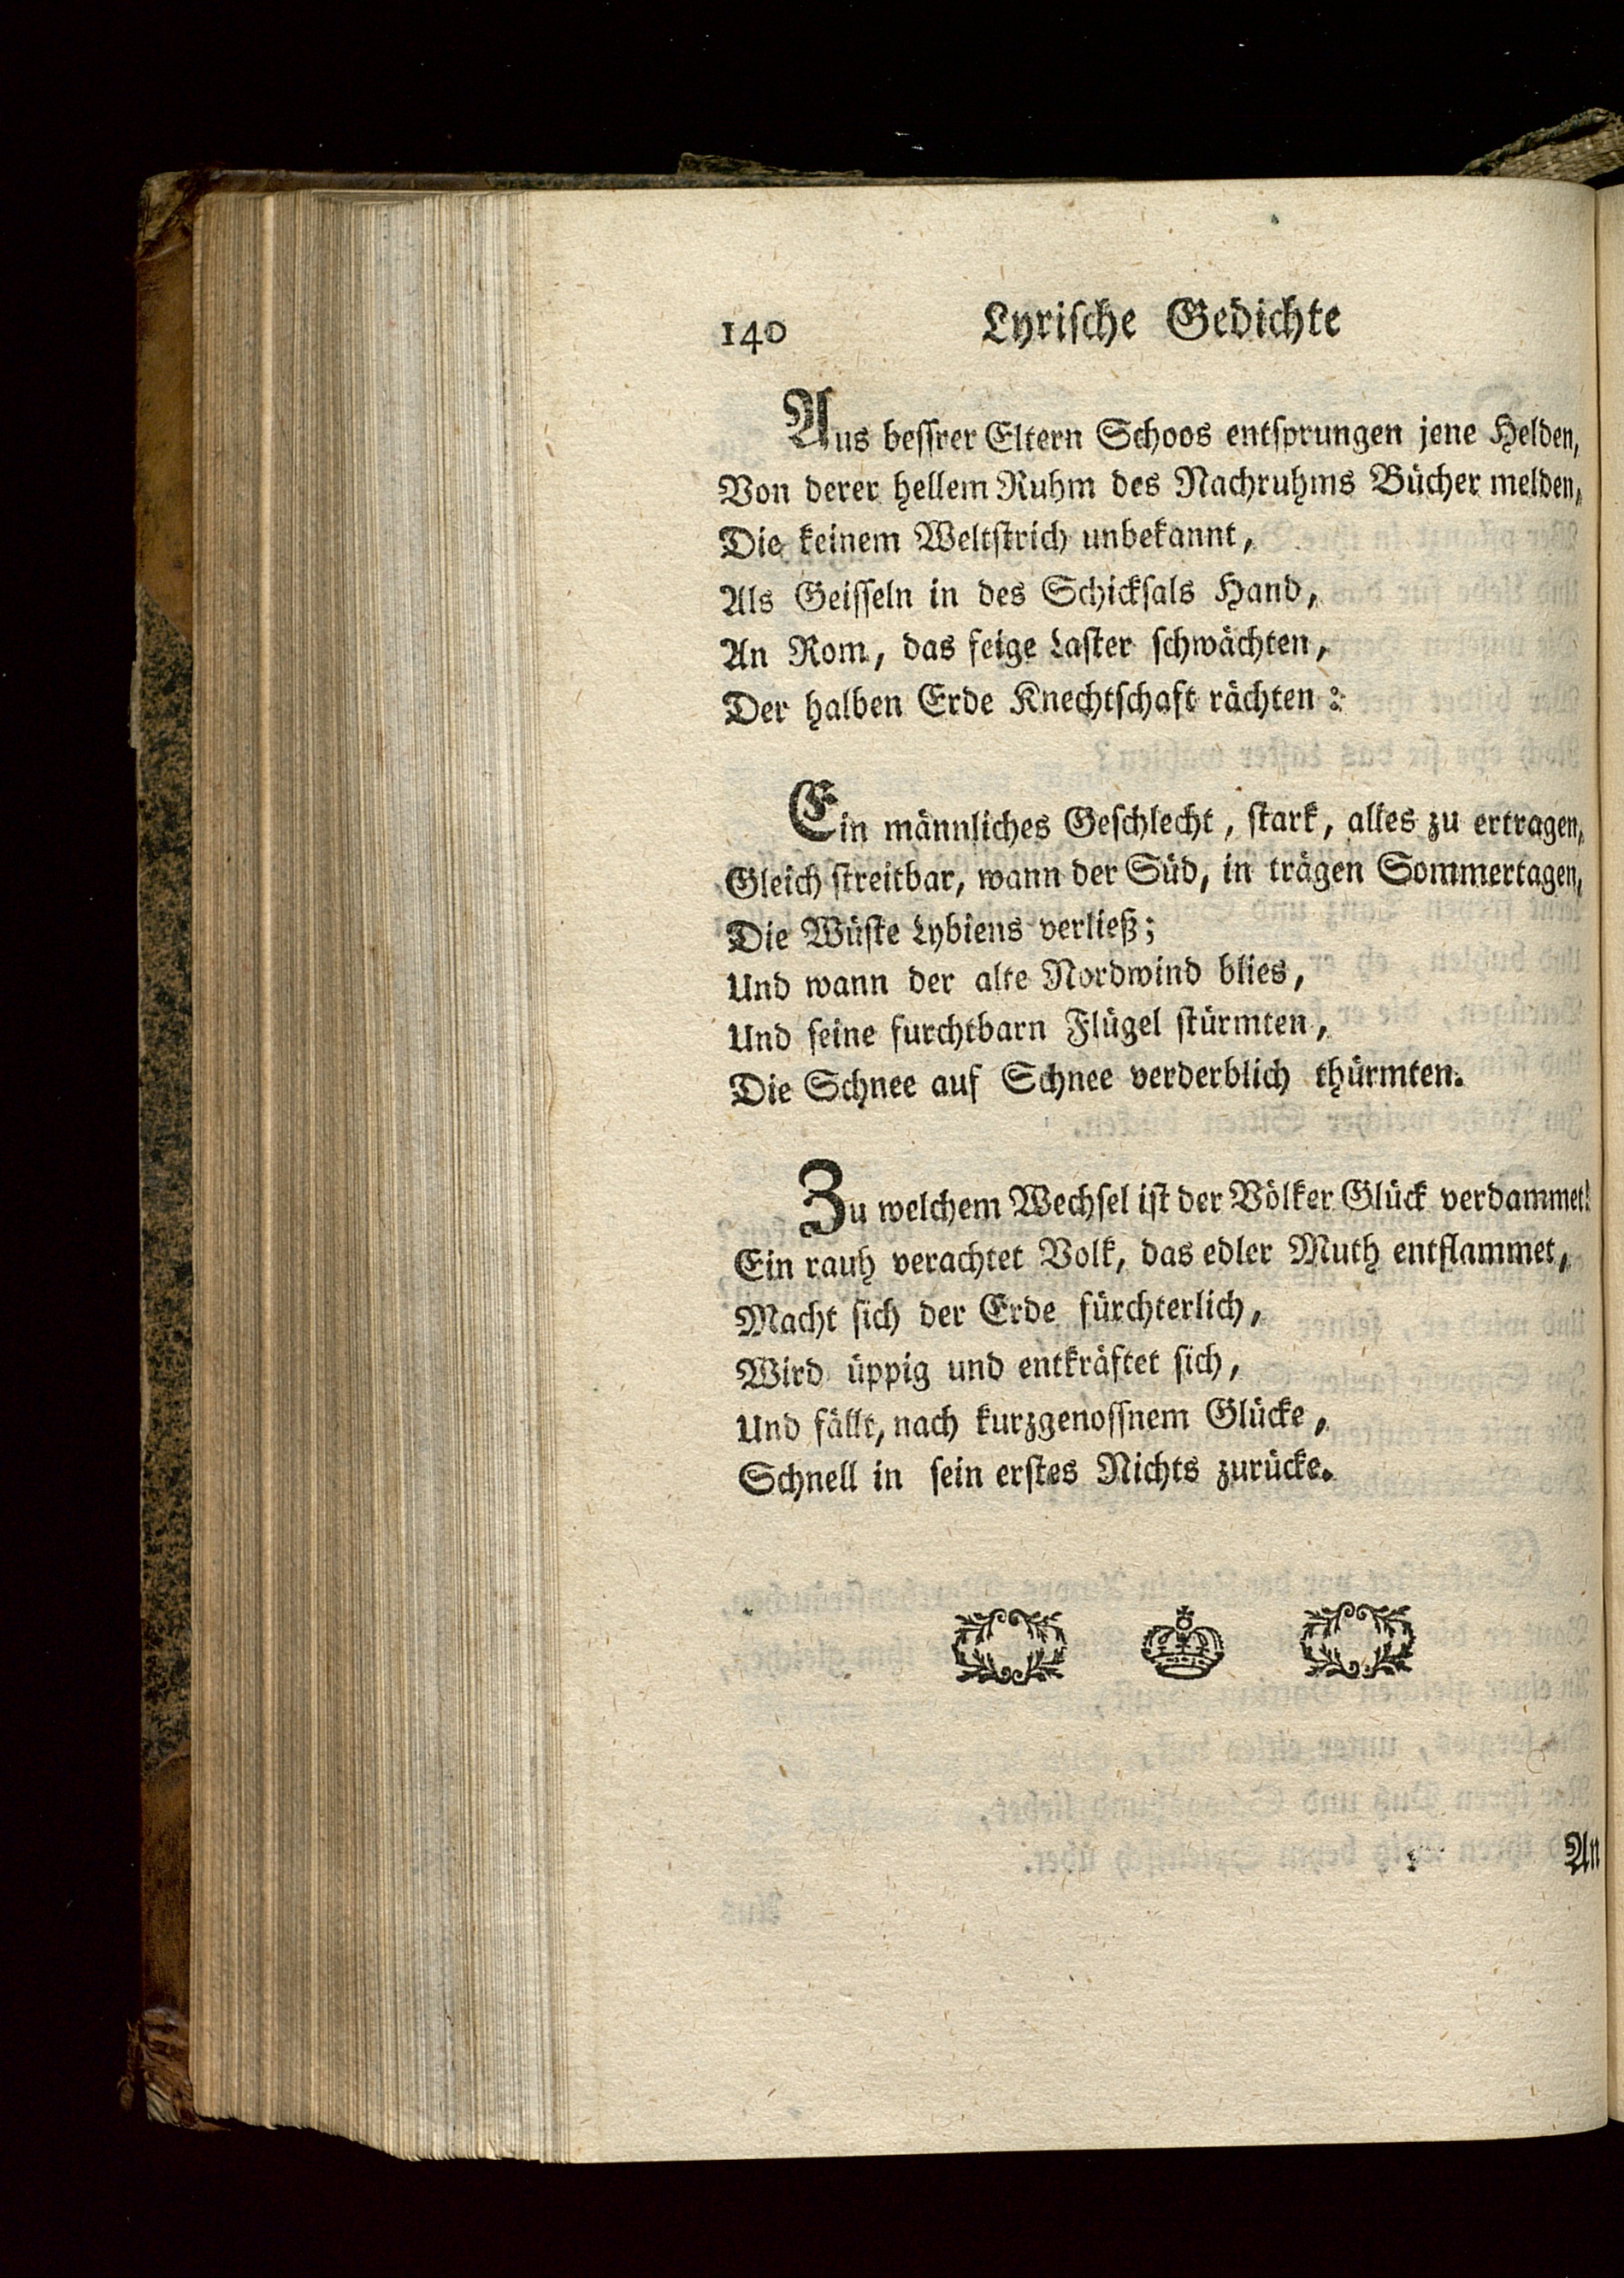 140 Lyrische Gedichte
Aus bessrer Eltern Schoos entsprungen jene Helden,
Von derer hellem Ruhm des Nachruhms Bücher melden,
Die keinem Weltstrich unbekannt,
Als Geisseln in des Schicksals Hand,
An Rom, das feige Laster schwächten,
Der halben Erde Knechtschaft rächten:
Ein männliches Geschlecht, stark, alles zu ertragen,
Gleich streitbar, wann der Süd, in trägen Sommertagen,
Die Wüste Lybiens verließ;
Und wann der alte Nordwind blies,
Und seine furchtbarn Flügel stürmten,
Die Schnee auf Schnee verderblich thürmten.
Zu welchem Wechsel ist der Völker Glück verdammet!
Ein rauh verachtet Volk, das edler Muth entflammet,
Macht sich der Erde fürchterlich,
Wird üppig und entkräftet sich,
Und fällt, nach kurzgenossnem Glücke,
Schnell in sein erstes Nichts zurücke.
An